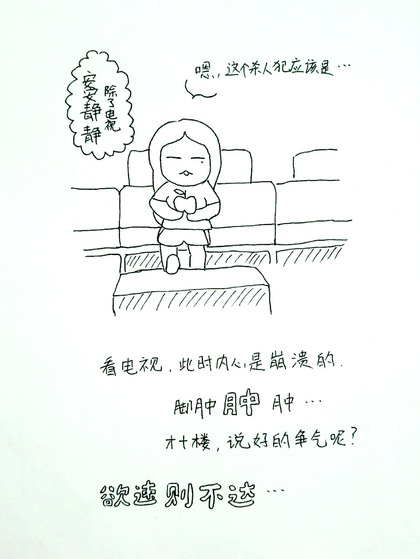 嗯，这个杀人犯应该是…
除了电视
安安静静
看电视，此时内心是崩溃的.
脚肿肿肿…
才十楼，说好的争气呢？
欲速则不达…